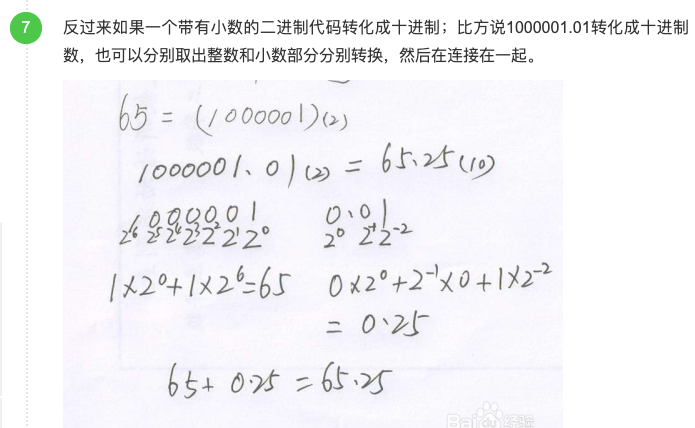 7
反过来如果一个带有小数的二进制代码转化成十进制；比方说1000001.01转化成十进制
数，也可以分别取出整数和小数部分分别转换，然后在连接在一起。
65 = (1000001)(2)
1000001.01(2) = 65.25(10)
1000001 0.01
2⁶ 2⁵ 2⁴ 2³ 2² 2¹ 2⁰ 2⁰ 2⁻¹ 2⁻²
1×2⁰+1×2⁶=65 0×2⁰+2⁻¹×0+1×2⁻²
= 0.25
65+0.25=65.25
Baidu 经验